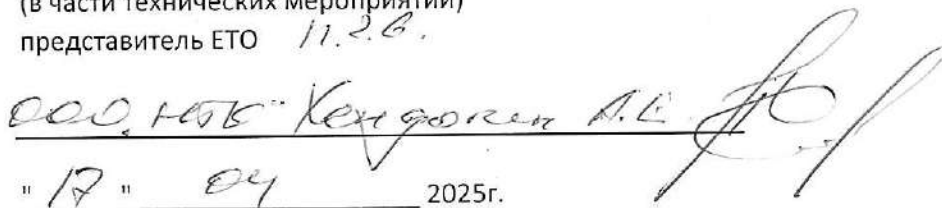 (в части технических мероприятий)
представитель ЕТО п.2.6.
ООО "НТК" А.Е.
" 17 " 04 2025г.